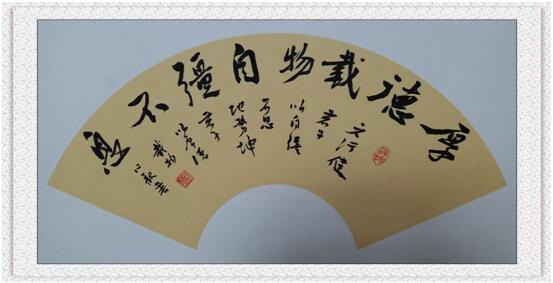 厚德載物自彊不息
天行健
君子
以自强
不息
地势坤
君子
以厚德
載物